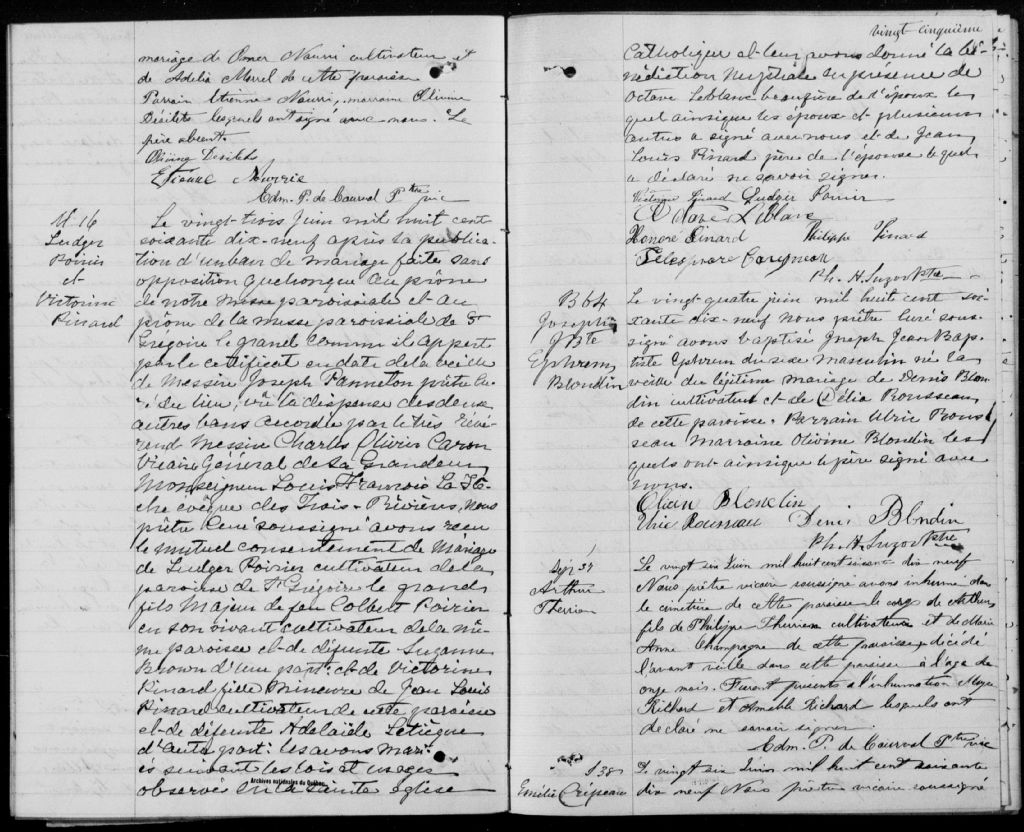 mariage de Omer Nourri cultivateur et
de Adelia Morel de cette paroisse
Parrain Etienne Nourri, marraine Olivine
Désilets lesquels ont signé avec nous. Le
père absent.
Olivine Desilets
Etienne Nourrie
Edm. P. de Courval Ptre vic
M 16
Ludger
Poirier
et
Victorine
Pinard
Le vingt-trois juin mil huit cent
soixante dix-neuf après la publica-
tion d'un ban de mariage faite sans
opposition quelconque au prône
de notre messe paroissiale et au
prône de la messe paroissiale de St
Grégoire le grand comme il appert
par le certificat en date de la veille
de Messire Joseph Panneton prêtre cu-
ré du lieu; vû la dispense des deux
autres bans accordée par le très Révé-
rend Messire Charles Olivier Caron
Vicaire Général de Sa Grandeur
Monseigneur Louis François La Flè-
che évêque des Trois-Rivières, Nous
prêtre Curé soussigné avons reçu
le mutuel consentement de Mariage
de Ludger Poirier cultivateur de la
paroisse de St Grégoire le grand
fils Majeur de feu Colbert Poirier
en son vivant cultivateur de la mê-
me paroisse et de défunte Suzanne
Brown d'une part: et de Victorine
Pinard fille Mineure de Jean Louis
Pinard cultivateur de cette paroisse
et de défunte Adelaïde
d'autre part: les avons mari-
és suivant les lois et usages
observés en la Sainte Eglise
Archives nationales du Québec
vingt cinquième
Catholique et leur avons donné la bé-
nédiction Nuptiale en présence de
Octave Leblanc beaufrère de l'époux le
quel ainsique les époux et plusieurs
autres a signé avec nous et de Jean
Louis Pinard père de l'épouse lequel
a déclaré ne savoir signer.
Victorine Pinard Ludger Poirier
Octave Leblanc
Honoré Pinard Philippe Pinard
Telesphore
Ph. H. Suzor Ptre
B 64
Joseph
J Bte
Ephrem
Blondin
Le vingt-quatre juin mil huit cent soi-
xante dix-neuf Nous prêtre curé sous-
signé avons baptisé Joseph Jean Bap-
tiste Ephrem du sexe Masculin né la
veille du légitime mariage de Denis Blon-
din cultivateur et de Délia Rousseau
de cette paroisse. Parrain Ulric Rous-
seau Marraine Olivine Blondin les
quels ont ainsique le père signé avec
nous.
Blondin
Ulric Rousseau Denis Blondin
Ph. H. Suzor Ptre
Sep 37
Arthur
Therrien
Le vingt six Juin mil huit cent soixante dix neuf
Nous prêtre vicaire soussigné avons inhumé dans
le cimetière de cette paroisse le corps de Arthur
fils de Philippe Therrien cultivateur et de Marie
Anne Champagne de cette paroisse, décédé
l'avant veille dans cette paroisse à l'age de
onze mois. Furent présents à l'inhumation
Richard et Amable Richard lesquels ont
declaré ne savoir signer
Edm. P. de Courval Ptre vic
S 38
Emilie Crepeau
Le vingt six Juin mil huit cent soixante
dix neuf Nous prêtre vicaire soussigné